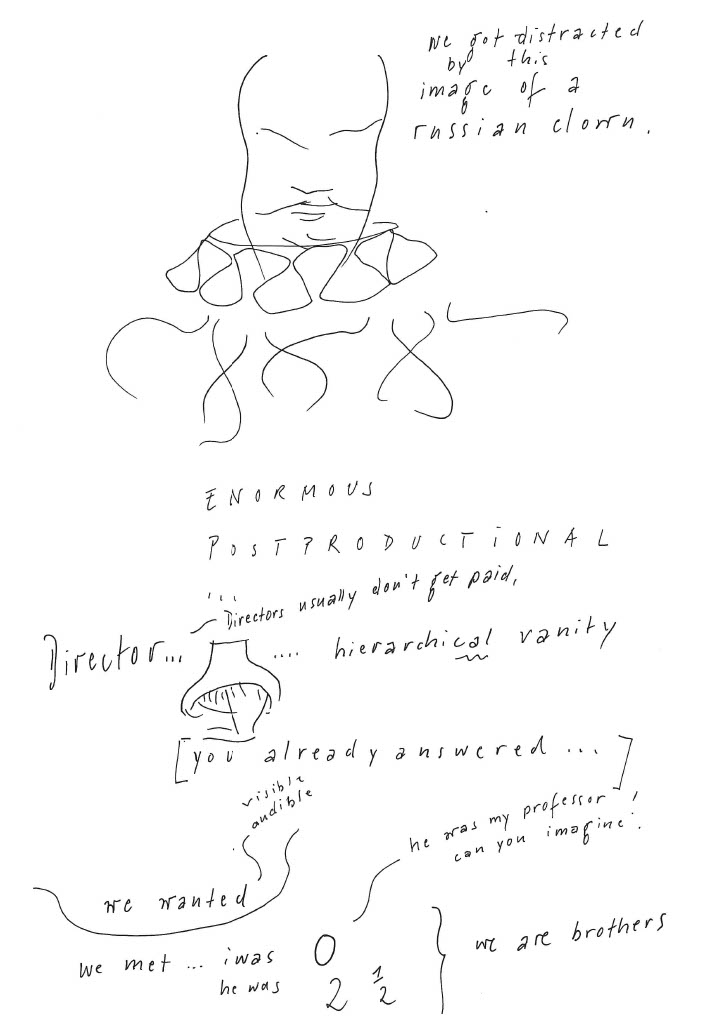 we got distracted
by this
image of a
russian clown.
ENORMOUS
POSTPRODUCTIONAL
...
Directors usually don't get paid,
Director... .... hierarchical vanity
[you already answered ...]
visible
audible
he was my professor!
can you imagine!
we wanted
we met ... i was 0
he was 2 1/2
we are brothers